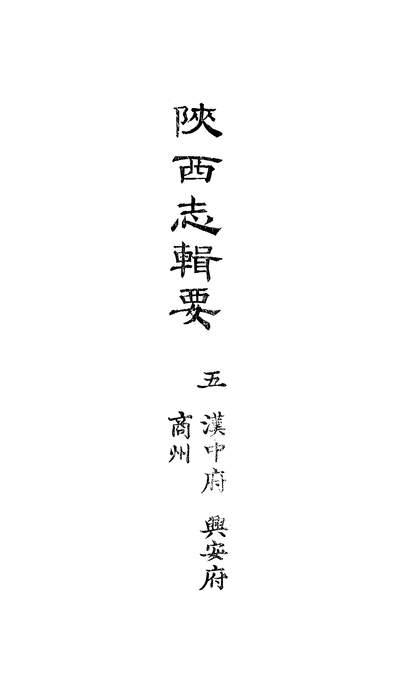 陝西志輯要
五
漢中府 興安府
商州